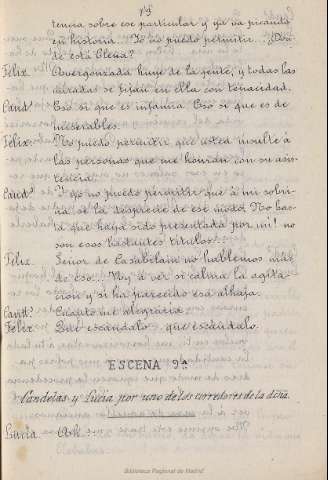 19
tencia sobre ese particular y ya va picando
en historia. Yo no puedo permitir... ¿Don-
de está Elena?
Felix. Avergonzada huye de la gente, y todas las
miradas se fijan en ella con tenacidad.
Candˢ Eso si que es infamia. Eso si que es de
miserables.
Felix. No puedo permitir que usted insulte á
las personas que me honran con su asis-
tencia.
Candˢ Y yo no puedo permitir que á mi sobri-
na se la desprecie de ese modo. No bas-
ta que haya sido presentada por mi! no
son esos bastantes titulos!
Felix. Señor de Casabelain no hablemos mas
de eso... Voy á ver si calma la agita-
cion y si ha parecido esa alhaja.
Candˢ Cuanto me alegraria.
Felix. Que escandalo.. que escandalo.
ESCENA 9ª
Candelas y Lucia por uno de los corredores de la dcha.
Lucia. Ah!
Biblioteca Regional de Madrid